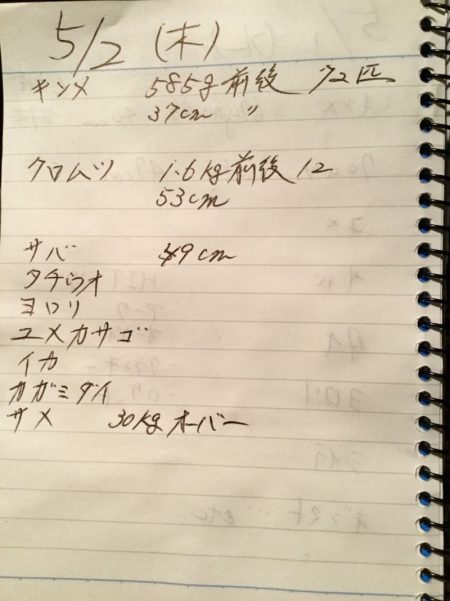 5/2 (木)
キンメ 585g前後 72匹
37cm 〃
クロムツ 1.6kg前後 12
53cm
サバ 49cm
タチウオ
ヨロリ
ユメカサゴ
イカ
カガミダイ
サメ 30kgオーバー